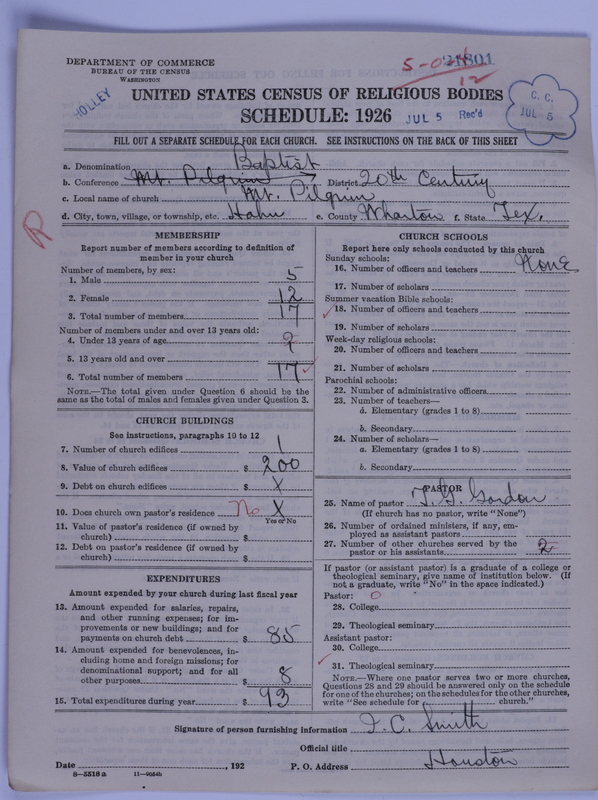 DEPARTMENT OF COMMERCE
BUREAU OF THE CENSUS
WASHINGTON
HOLLEY
UNITED STATES CENSUS OF RELIGIOUS BODIES
SCHEDULE: 1926
JUL 5 Rec'd
C. C.
JUL 5
FILL OUT A SEPARATE SCHEDULE FOR EACH CHURCH. SEE INSTRUCTIONS ON THE BACK OF THIS SHEET
a. Denomination Baptist
b. Conference Mt. Pilgrim District 20th Century
c. Local name of church Mt. Pilgrim
d. City, town, village, or township, etc. Hahn e. County Wharton f. State Tex.
R
MEMBERSHIP
Report number of members according to definition of
member in your church
Number of members, by sex:
1. Male 5
2. Female 12
3. Total number of members 17
Number of members under and over 13 years old:
4. Under 13 years of age
5. 13 years old and over
6. Total number of members 17
NOTE.—The total given under Question 6 should be
same as the total of males and females given under Question 3.
CHURCH BUILDINGS
See instructions, paragraphs 10 to 12
7. Number of church edifices 1
8. Value of church edifices $ 200
9. Debt on church edifices $ X
10. Does church own pastor's residence No X
Yes or No
11. Value of pastor's residence (if owned by
church) $
12. Debt on pastor's residence (if owned by
church) $
EXPENDITURES
Amount expended by your church during last fiscal year
13. Amount expended for salaries, repairs,
and other running expenses; for im-
provements or new buildings; and for
payments on church debt $ 85
14. Amount expended for benevolences, in-
cluding home and foreign missions; for
denominational support; and for all
other purposes $ 8
15. Total expenditures during year $ 93
CHURCH SCHOOLS
Report here only schools conducted by this church
Sunday schools:
16. Number of officers and teachers None
17. Number of scholars
Summer vacation Bible schools:
18. Number of officers and teachers
19. Number of scholars
Week-day religious schools:
20. Number of officers and teachers
21. Number of scholars
Parochial schools:
22. Number of administrative officers
23. Number of teachers—
a. Elementary (grades 1 to 8)
b. Secondary
24. Number of scholars—
a. Elementary (grades 1 to 8)
b. Secondary
PASTOR
25. Name of pastor T. G. Gordon
(If church has no pastor, write "None")
26. Number of ordained ministers, if any, em-
ployed as assistant pastors
27. Number of other churches served by the
pastor or his assistants 2
If pastor (or assistant pastor) is a graduate of a college or
theological seminary, give name of institution below. (If
not a graduate, write "No" in the space indicated.)
Pastor: O
28. College
29. Theological seminary
Assistant pastor:
30. College
31. Theological seminary
NOTE.—Where one pastor serves two or more churches,
Questions 28 and 29 should be answered only on the schedule
for one of the churches; on the schedules for the other churches,
write "See schedule for church."
Signature of person furnishing information J. C. Smith
Official title
Date , 192 P. O. Address Houston
8—5518 a